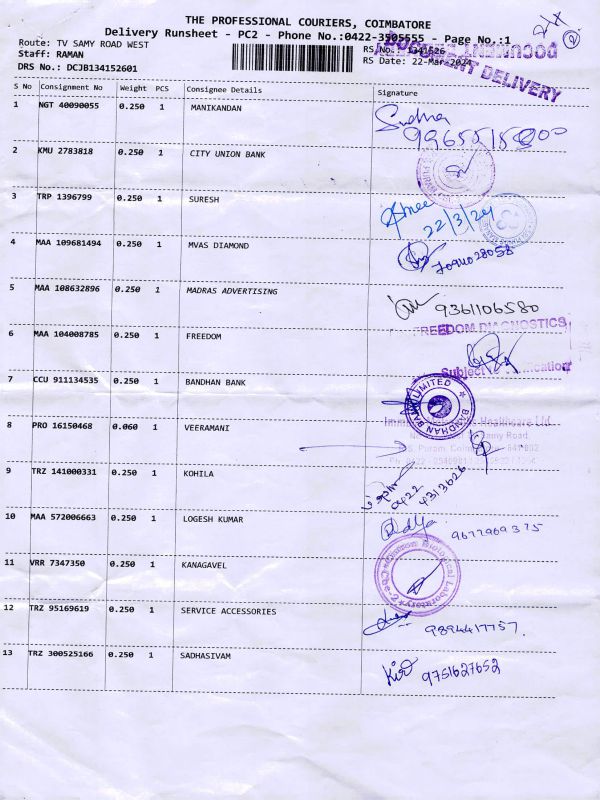 THE PROFESSIONAL COURIERS, COIMBATORE
Delivery Runsheet - PC2 - Phone No.:0422-3505555 - Page No.:1
Route: TV SAMY ROAD WEST
RS No.: 1341526
Staff: RAMAN
RS Date: 22-Mar-2024
DRS No.: DCJB134152601
DOCUMENT DELIVERY
S No Consignment No Weight PCS Consignee Details Signature
1 NGT 40090055 0.250 1 MANIKANDAN
Sudha
2 KMU 2783818 0.250 1 CITY UNION BANK
3 TRP 1396799 0.250 1 SURESH
22/3/24
4 MAA 109681494 0.250 1 MVAS DIAMOND
5 MAA 108632896 0.250 1 MADRAS ADVERTISING
9361106580
6 MAA 104008785 0.250 1 FREEDOM
FREEDOM DIAGNOSTICS
Subject
7 CCU 911134535 0.250 1 BANDHAN BANK
BANDHAN BANK LIMITED
8 PRO 16150468 0.060 1 VEERAMANI
Healthcare Ltd
9 TRZ 141000331 0.250 1 KOHILA
0422
4313626
10 MAA 572006663 0.250 1 LOGESH KUMAR
9677969375
11 VRR 7347350 0.250 1 KANAGAVEL
12 TRZ 95169619 0.250 1 SERVICE ACCESSORIES
9894417757
13 TRZ 300525166 0.250 1 SADHASIVAM
9751627652